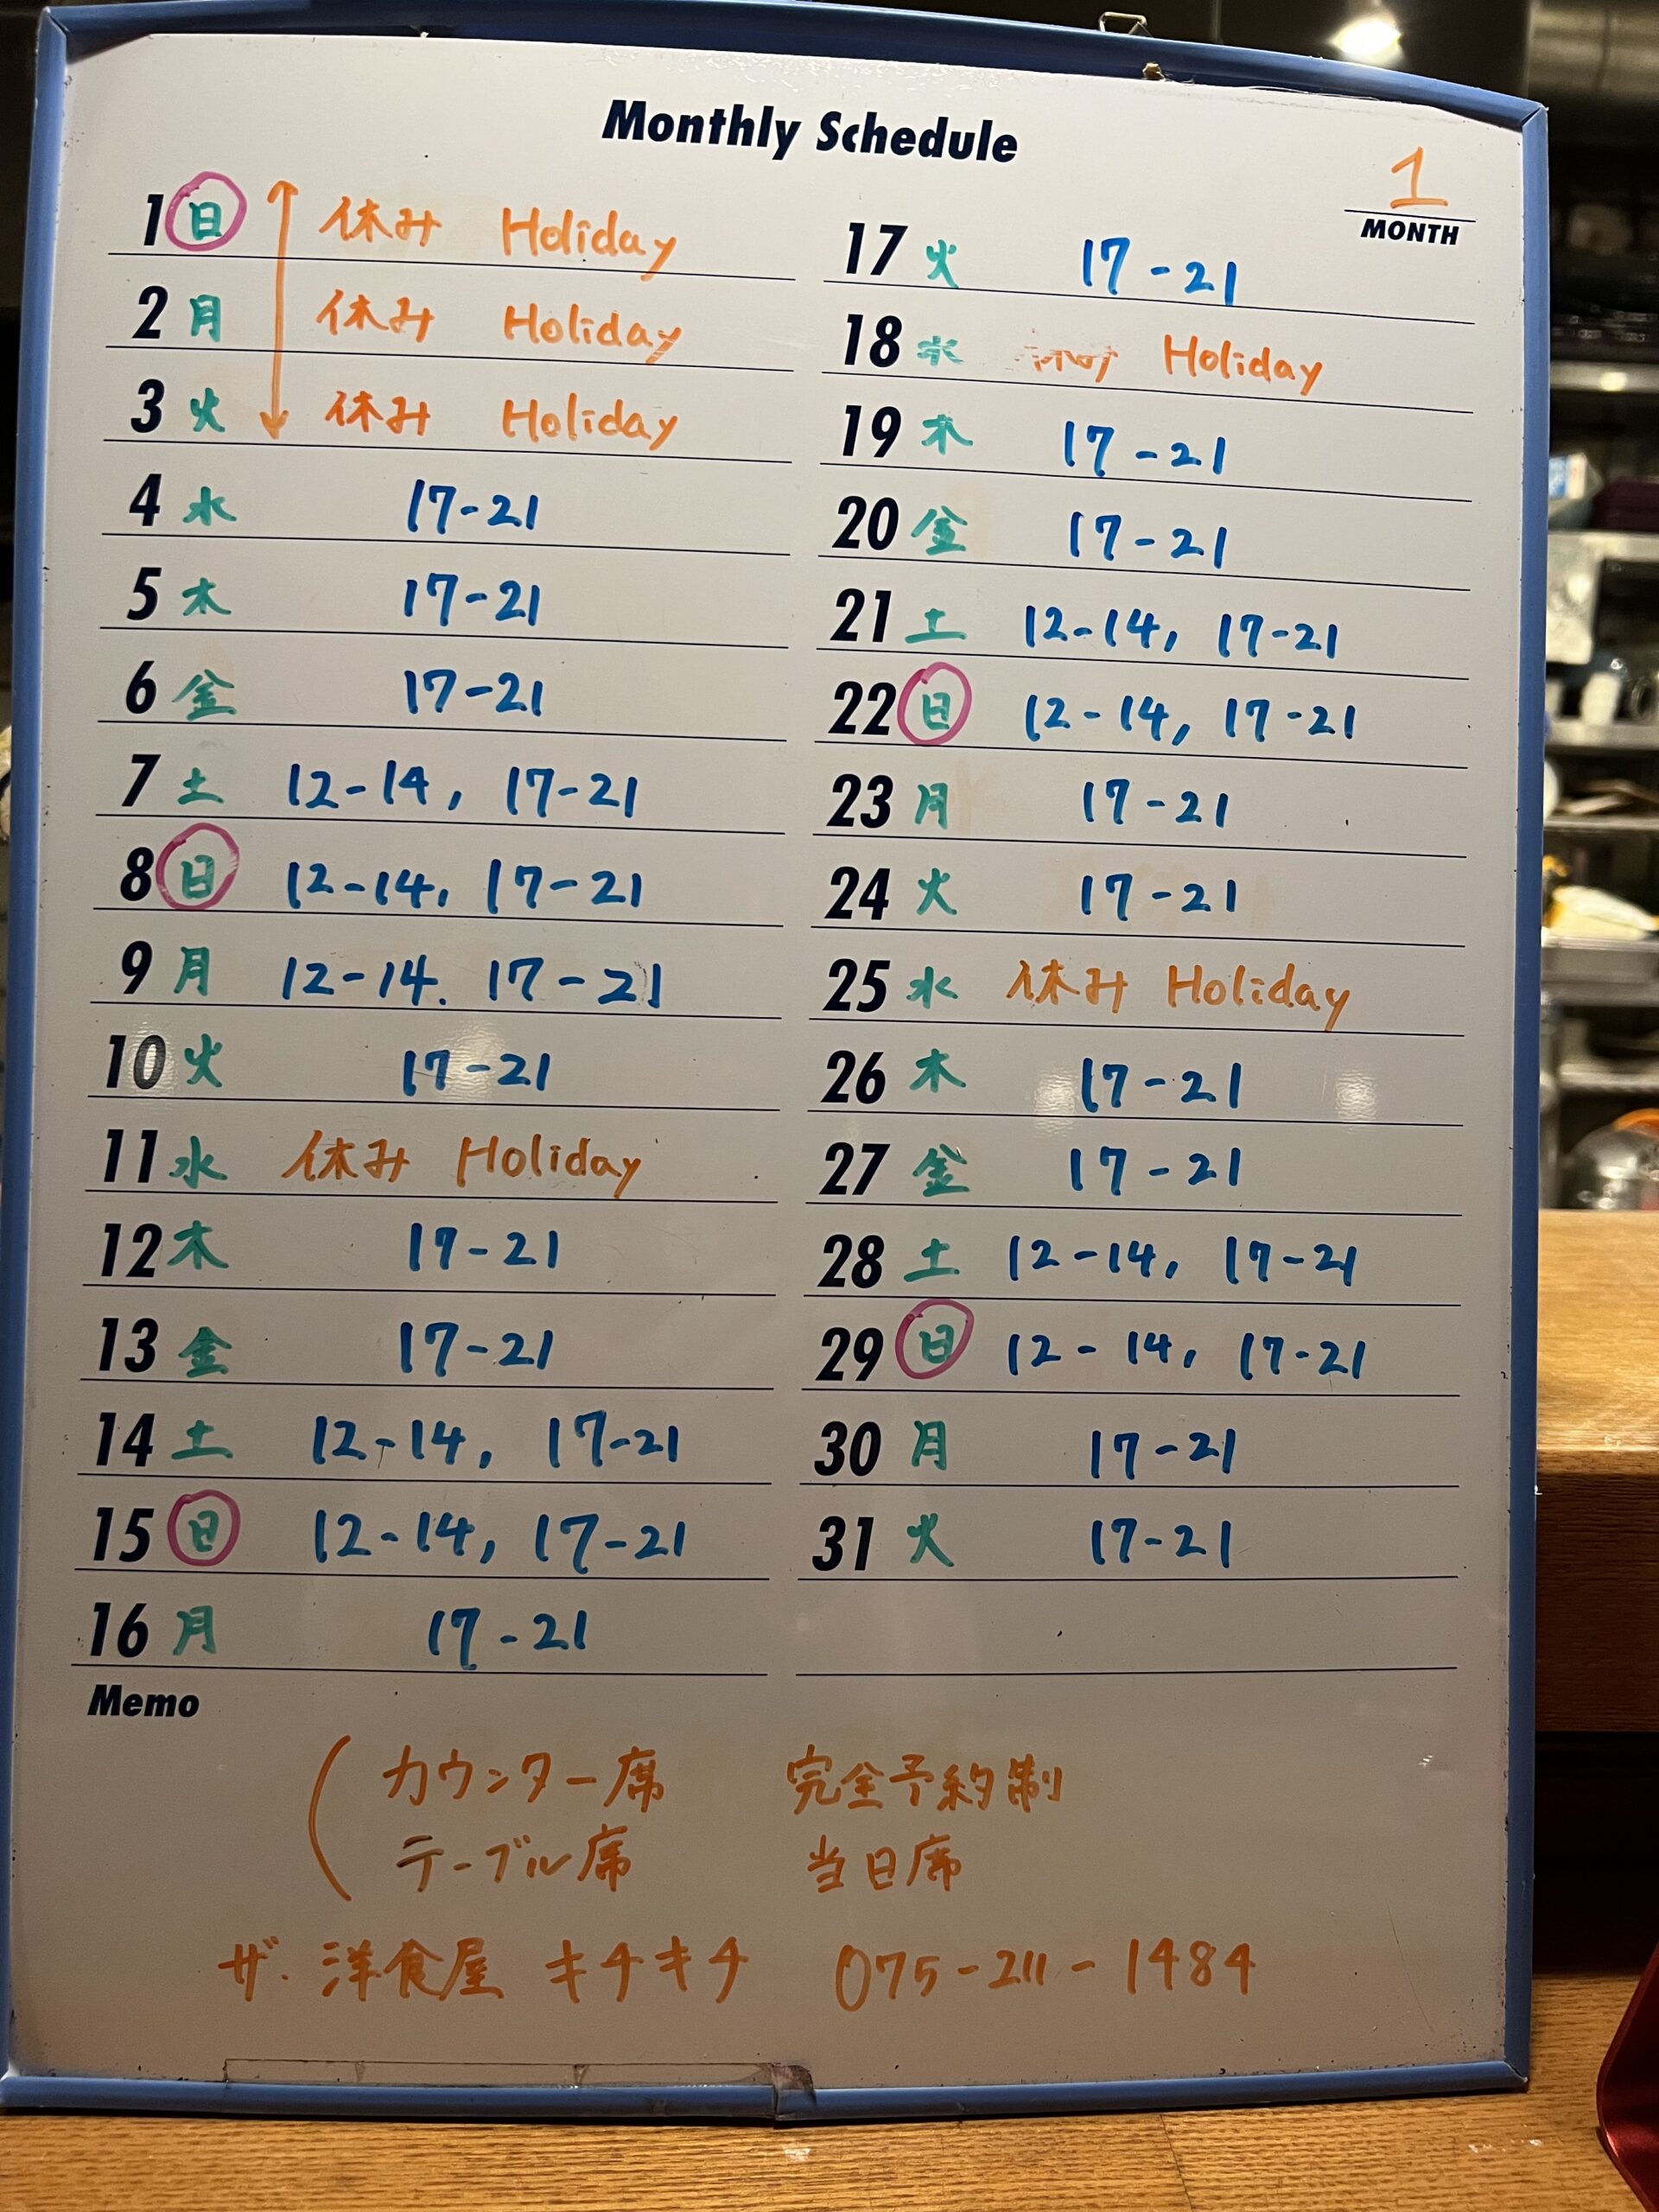 Monthly Schedule
1
MONTH
1 日 休み Holiday
2 月 休み Holiday
3 火 休み Holiday
4 水 17-21
5 木 17-21
6 金 17-21
7 土 12-14, 17-21
8 日 12-14, 17-21
9 月 12-14. 17-21
10 火 17-21
11 水 休み Holiday
12 木 17-21
13 金 17-21
14 土 12-14, 17-21
15 日 12-14, 17-21
16 月 17-21
17 火 17-21
18 水 Holiday
19 木 17-21
20 金 17-21
21 土 12-14, 17-21
22 日 12-14, 17-21
23 月 17-21
24 火 17-21
25 水 休み Holiday
26 木 17-21
27 金 17-21
28 土 12-14, 17-21
29 日 12-14, 17-21
30 月 17-21
31 火 17-21
Memo
カウンター席 完全予約制
テーブル席 当日席
ザ・洋食屋 キチキチ 075-211-1484